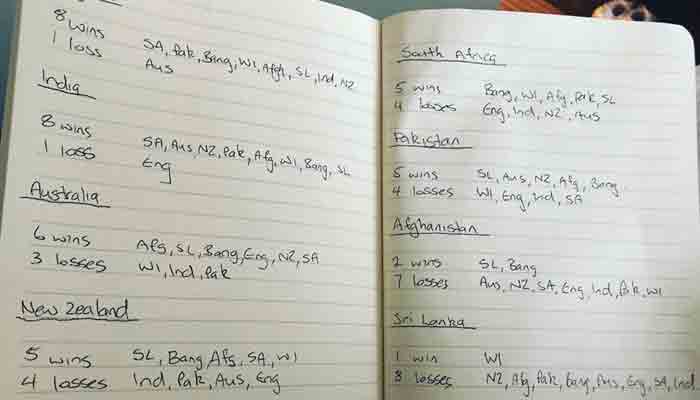 8 wins SA, Pak, Bang, WI, Afgh, SL, Ind, NZ
1 loss Aus
India
8 wins SA, Aus, NZ, Pak, Afg, WI, Bang, SL
1 loss Eng
Australia
6 wins Afg, SL, Bang, Eng, NZ, SA
3 losses WI, Ind, Pak
New Zealand
5 wins SL, Bang, Afg, SA, WI
4 losses Ind, Pak, Aus, Eng
South Africa
5 wins Bang, WI, Afg, Pak, SL
4 losses Eng, Ind, NZ, Aus
Pakistan
5 wins SL, Aus, NZ, Afg, Bang
4 losses WI, Eng, Ind, SA
Afghanistan
2 wins SL, Bang
7 losses Aus, NZ, SA, Eng, Ind, Pak, WI
Sri Lanka
1 win WI
8 losses NZ, Afg, Pak, Bang, Aus, Eng, SA, Ind